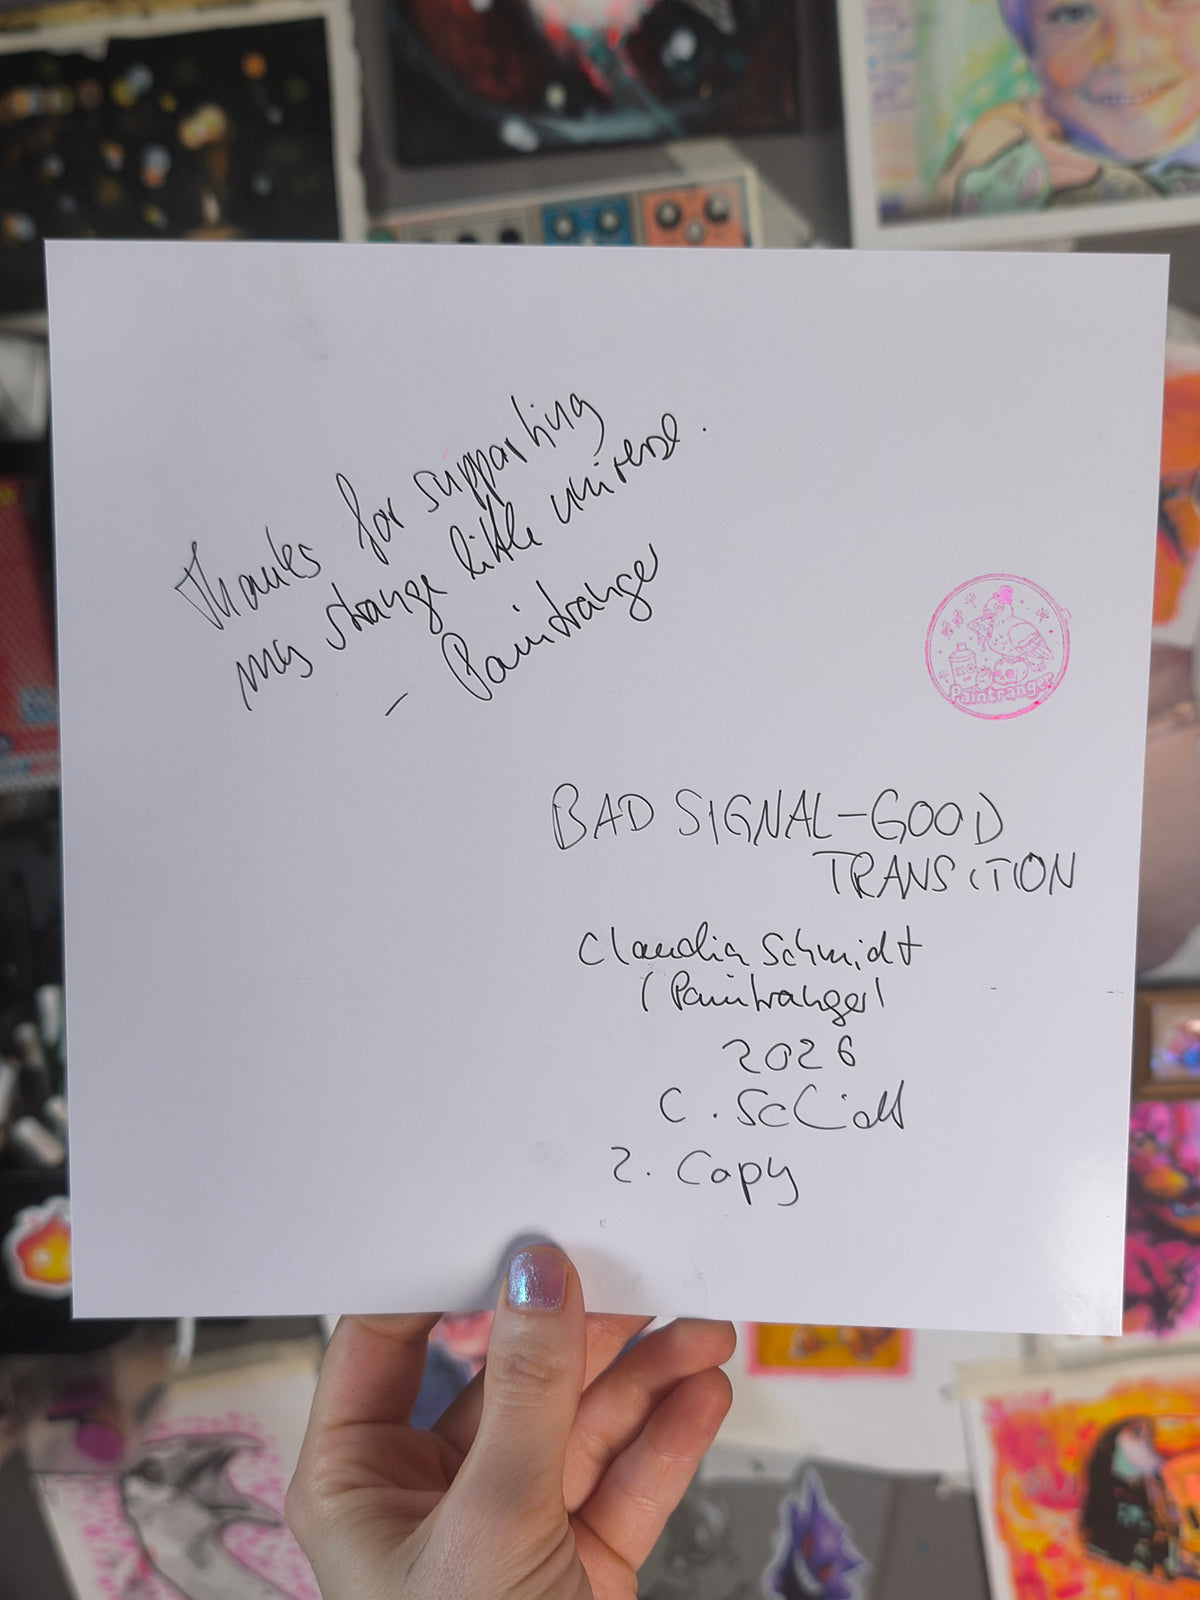 Thanks for supporting
my strange little universe.
– Paintranger
Paintranger
BAD SIGNAL–GOOD
TRANSITION
Claudia Schmidt
(Paintranger)
2026
C. Schmidt
2. Copy